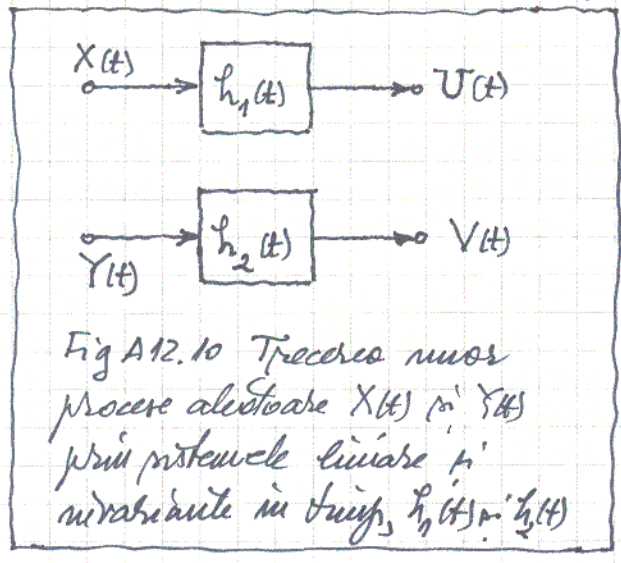 X(t)
h₁(t)
U(t)
h₂(t)
V(t)
Y(t)
Fig A12.10 Trecerea unor
procese aleatoare X(t) și Y(t)
prin sistemele liniare și
invariante în timp, h₁(t) și h₂(t)